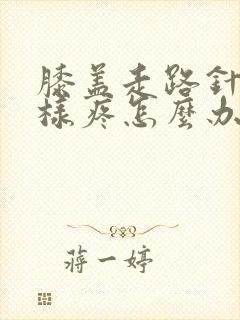 膝盖走路針
樣疼怎麼办
蔣一婷